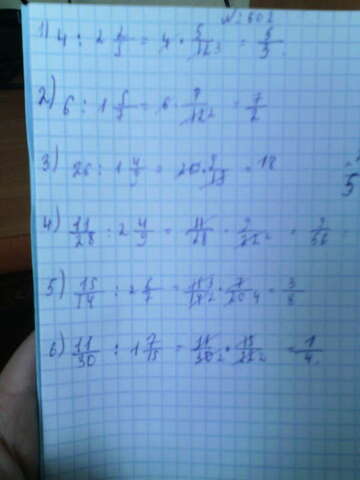 № 602
1) 4 : 2 2/5 = 4 · 5/12 3 = 5/3
2) 6 : 1 5/7 = 6 · 7/12 2 = 7/2
3) 26 : 1 4/9 = 26 · 9/13 = 18
4) 11/28 : 2 4/9 = 11/28 · 9/22 2 = 9/56
5) 15/14 : 2 6/7 = 15 3/14 2 · 7/20 4 = 3/8
6) 11/30 : 1 7/15 = 11/30 2 · 15/22 2 = 1/4
5